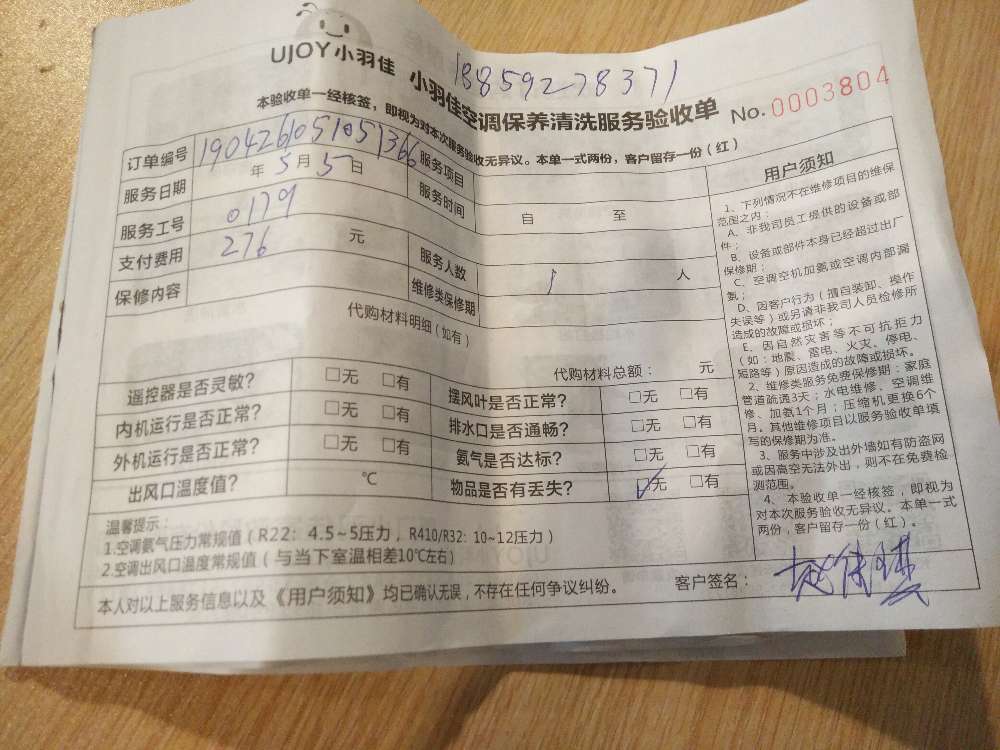 UJOY小羽佳
18859278371
小羽佳空调保养清洗服务验收单 No. 0003804
本验收单一经核签，即视为对本次服务验收无异议。本单一式两份，客户留存一份（红）
订单编号 1904261051051366 服务项目
服务日期 年 5 月 5 日 服务时间 自 至
服务工号 0179
支付费用 276 元 服务人数 1 人
保修内容 维修类保修期
代购材料明细（如有）
代购材料总额： 元
遥控器是否灵敏? □无 □有 摆风叶是否正常? □无 □有
内机运行是否正常? □无 □有 排水口是否通畅? □无 □有
外机运行是否正常? □无 □有 氨气是否达标? □无 □有
出风口温度值? ℃ 物品是否有丢失? ☑无 □有
温馨提示：
1.空调氨气压力常规值（R22：4.5~5压力，R410/R32：10~12压力）
2.空调出风口温度常规值（与当下室温相差10℃左右）
本人对以上服务信息以及《用户须知》均已确认无误，不存在任何争议纠纷。 客户签名：
用户须知
1、下列情况不在维修项目的维保
范围之内：
A、非我司员工提供的设备或部
件；
B、设备或部件本身已经超过出厂
保修期；
C、空调空机加氨或空调内部漏
氨；
D、因客户行为（擅自装卸、操作
失误等）或另请非我司人员检修所
造成的故障或损坏；
E、因自然灾害等不可抗拒力
（如：地震、雷电、火灾、停电、
短路等）原因造成的故障或损坏。
2、维修类服务免费保修期：家庭
管道疏通3天；水电维修、空调维
修、加氨1个月；压缩机更换6个
月。其他维修项目以服务验收单填
写的保修期为准。
3、服务中涉及出外墙如有防盗网
或因高空无法外出，则不在免费检
测范围。
4、本验收单一经核签，即视为
对本次服务验收无异议。本单一式
两份，客户留存一份（红）。